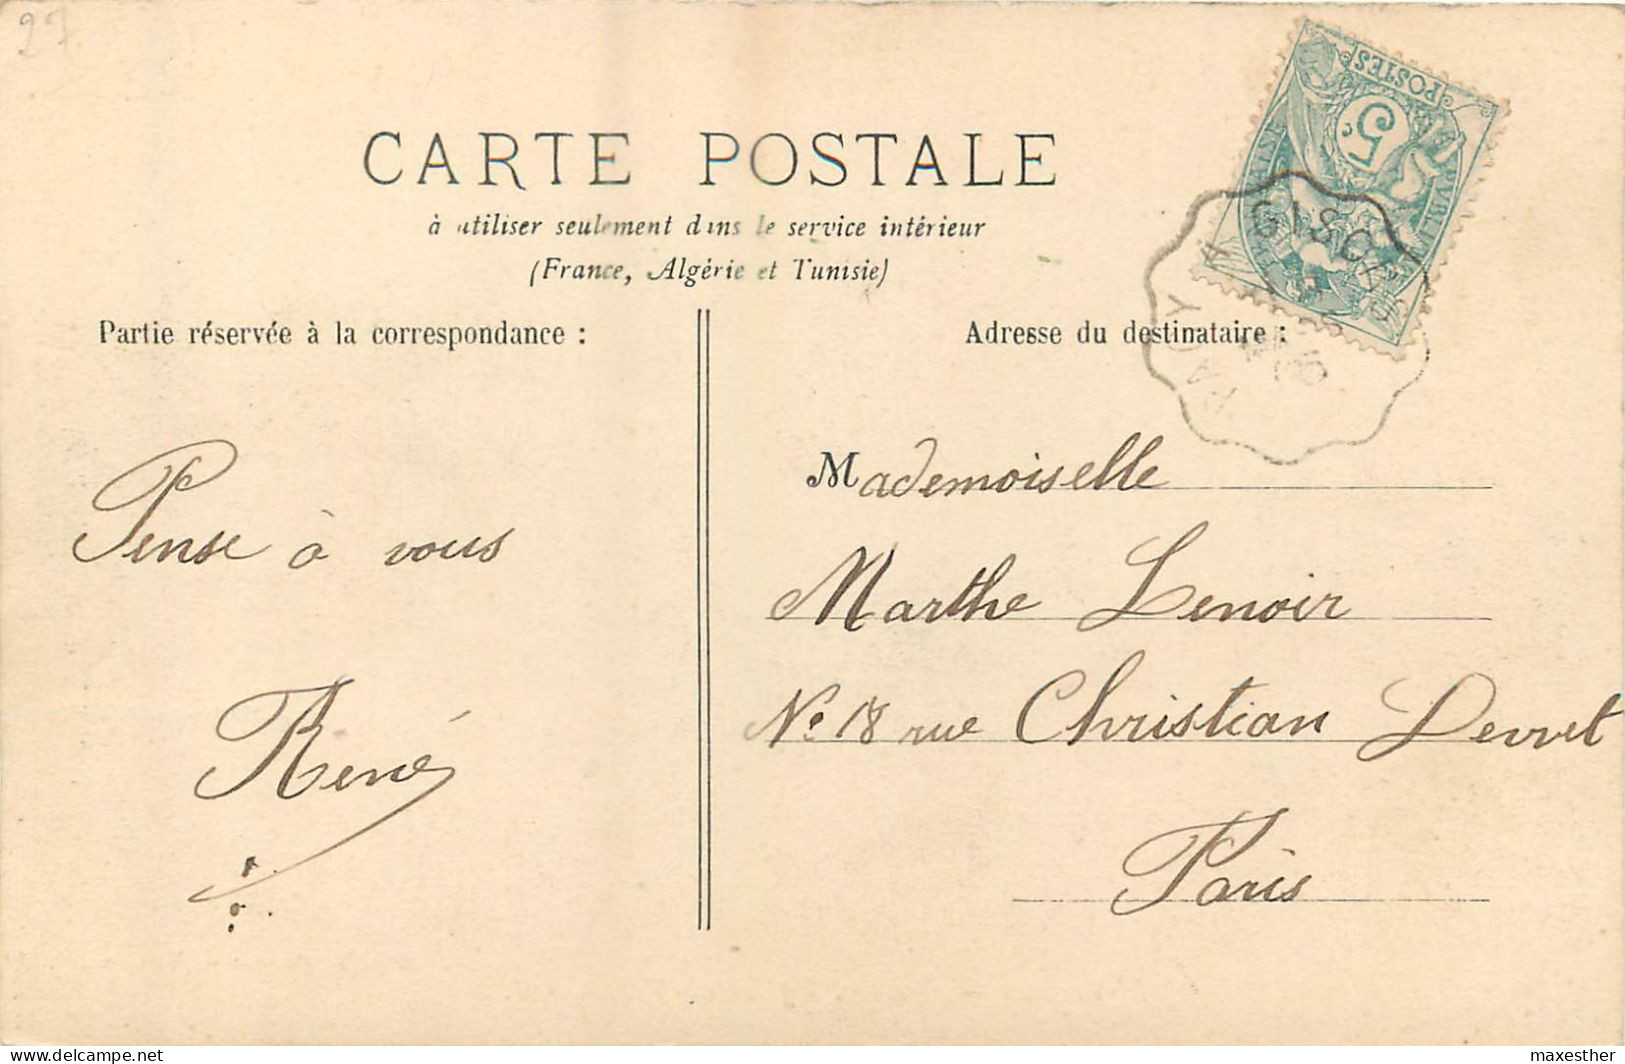 27
CARTE POSTALE
à utiliser seulement dans le service intérieur
(France, Algérie et Tunisie)
Partie réservée à la correspondance :
Adresse du destinataire :
POSTES
5c
GISORS
A PACY
Pense à vous
René
Mademoiselle
Marthe Lenoir
No 18 rue Christian Devvet
Paris
delcampe.net
maxesther